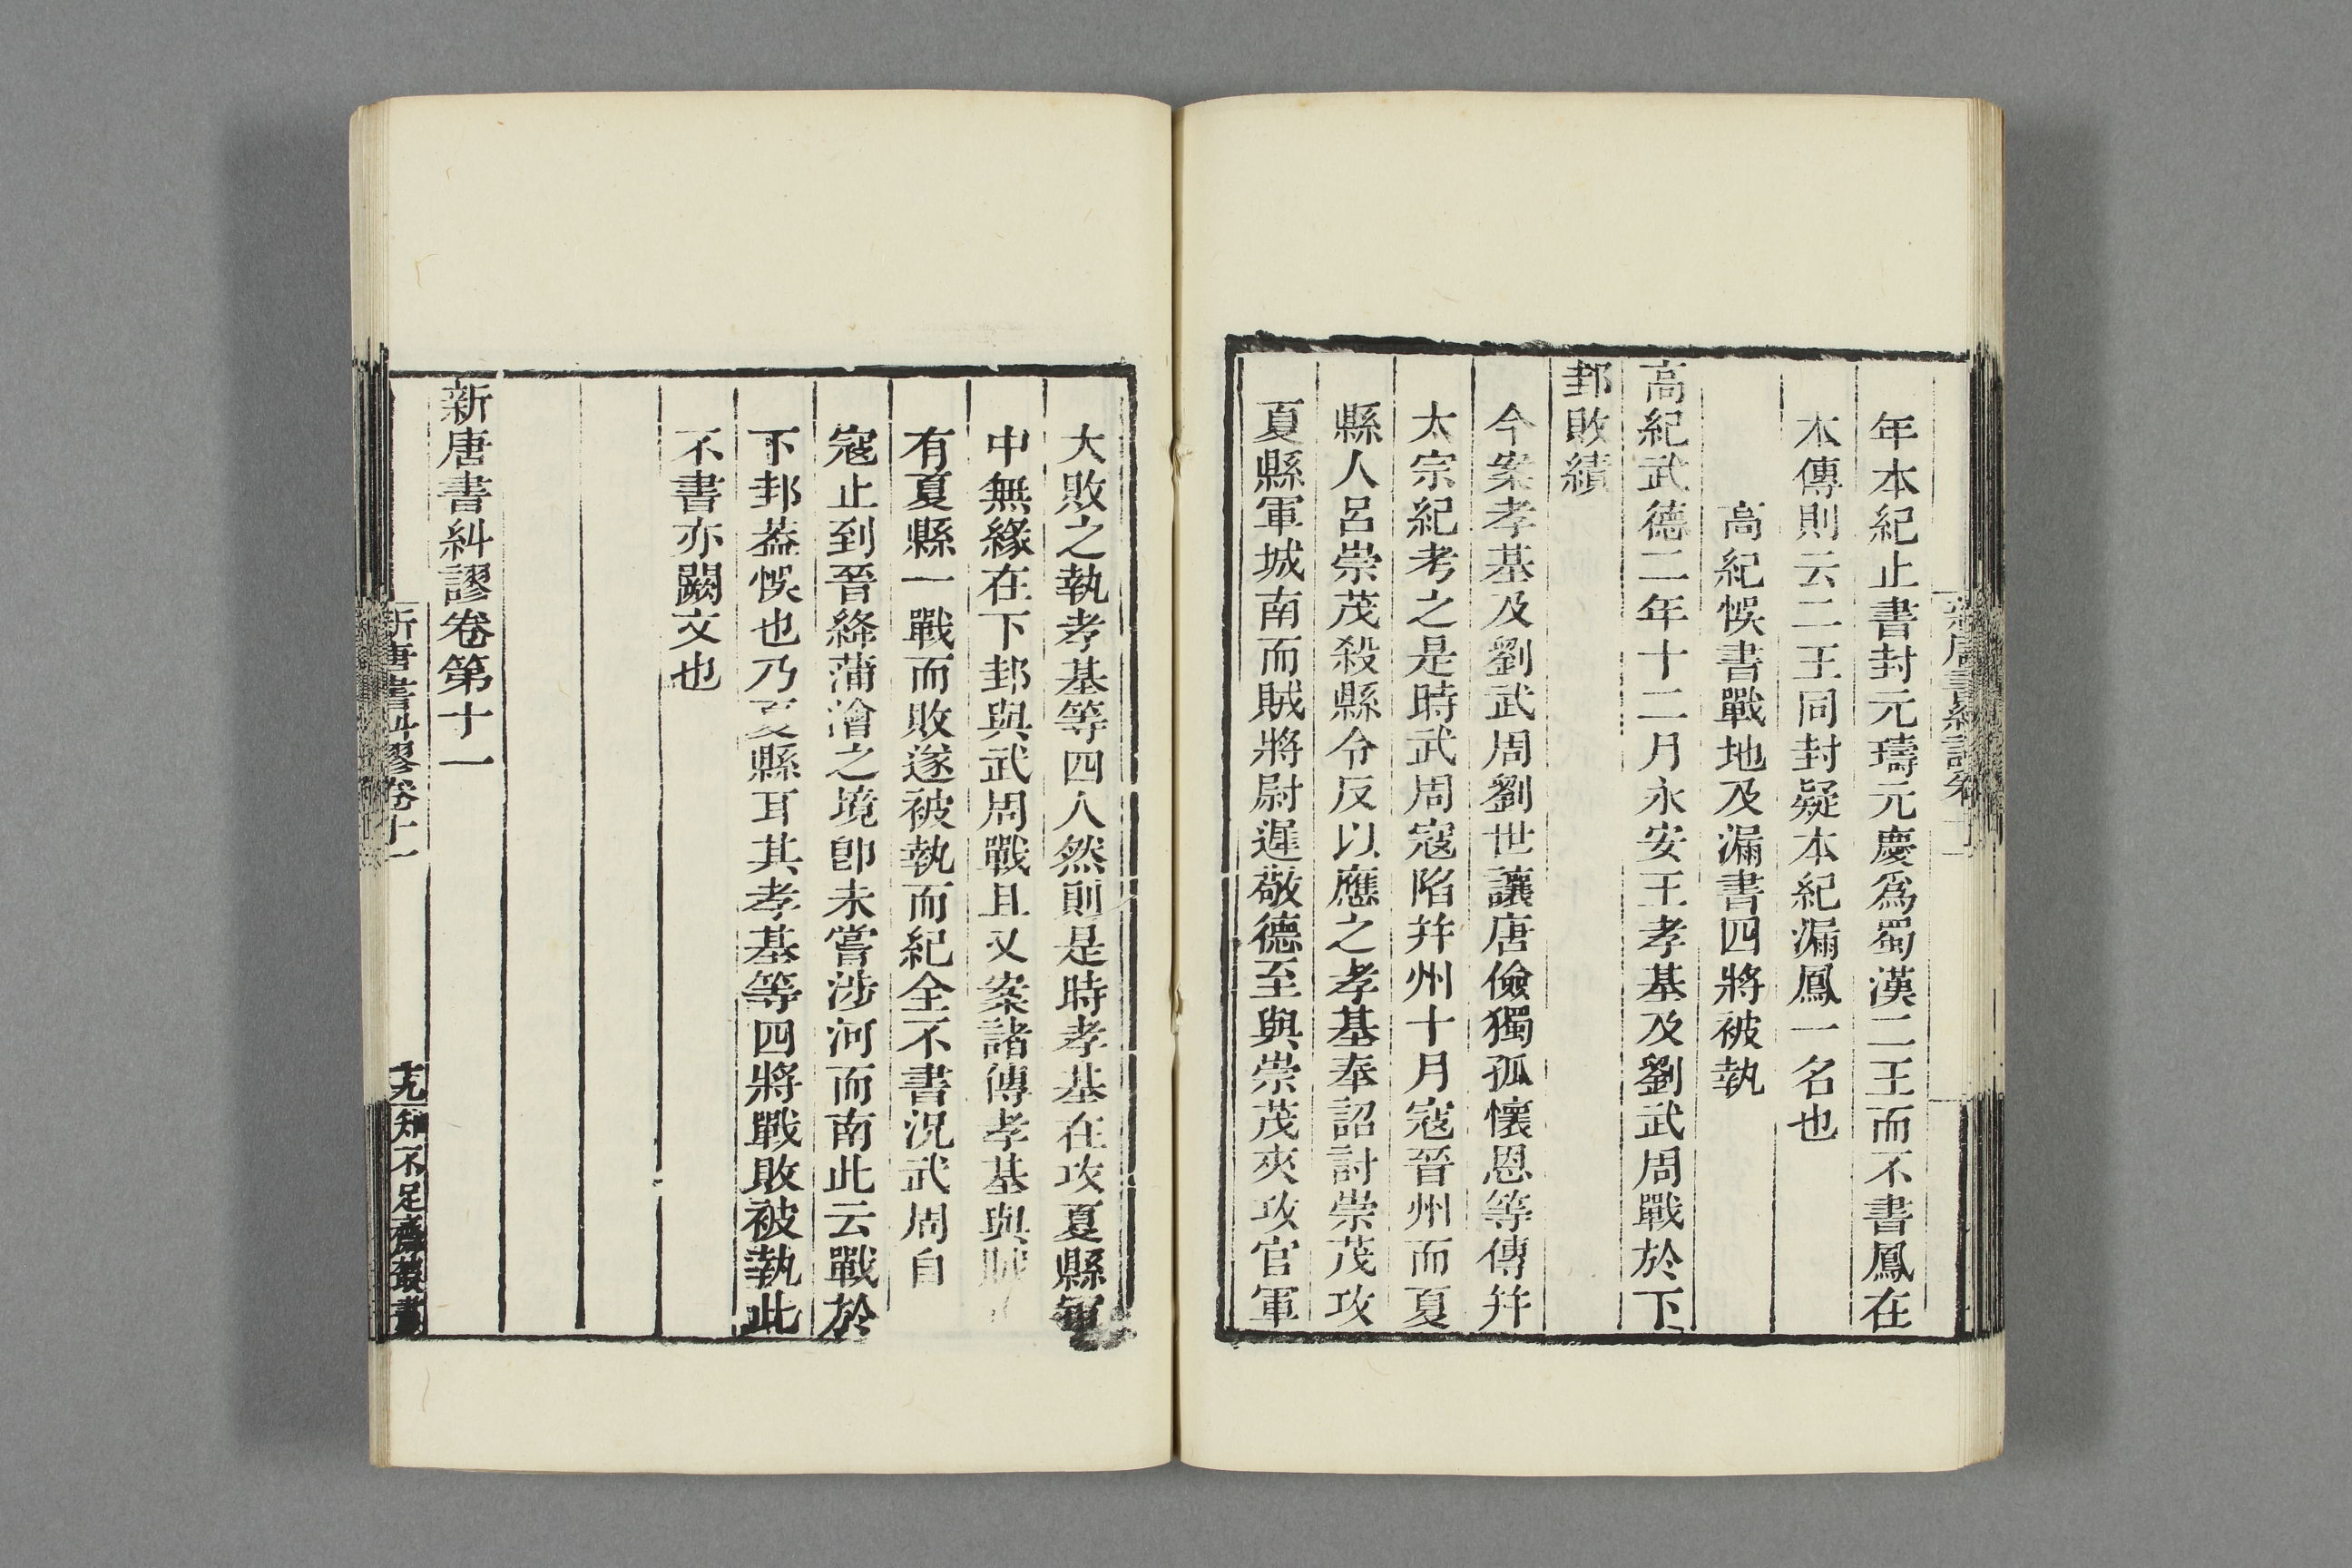 年本紀止書封元璹元慶爲蜀漢二王而不書鳳在
本傳則云二王同封疑本紀漏鳳一名也
高紀悞書戰地及漏書四將被執
高紀武德二年十二月永安王孝基及劉武周戰於下
邽敗績
今案孝基及劉武周劉世讓唐儉獨孤懷恩等傳幷
太宗紀考之是時武周寇陷幷州十月寇晉州而夏
縣人呂崇茂殺縣令反以應之孝基奉詔討崇茂攻
夏縣軍城南而賊將尉遲敬德至與崇茂夾攻官軍
大敗之執孝基等四人然則是時孝基在攻夏縣軍
中無緣在下邽與武周戰且又案諸傳孝基與賊
有夏縣一戰而敗遂被執而紀全不書況武周自
寇止到晉絳蒲澮之境卽未嘗涉河而南此云戰於
下邽葢悞也乃夏縣耳其孝基等四將戰敗被執此
不書亦闕文也
新唐書糾謬卷第十一
新唐書糾謬卷十一
知不足齋叢書